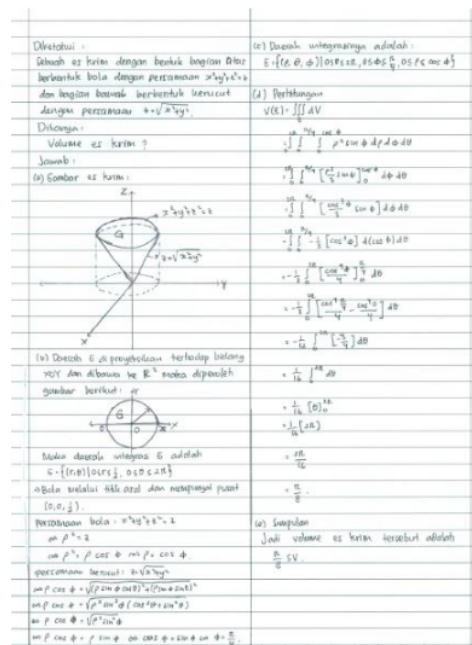 Diketahui :
Sebuah es krim dengan bentuk bagian atas
berbentuk bola dengan persamaan x²+y²+z²=z
dan bagian bawah berbentuk kerucut
dengan persamaan z=√x²+y².
Ditanya :
Volume es krim ?
Jawab :
(a) Gambar es krim :
Z
x²+y²+z²=z
G
z=√x²+y²
Y
X
(b) Daerah G di proyeksikan terhadap bidang
XOY dan dibawa ke R² maka diperoleh
gambar berikut :
G
0
X
Maka daerah integrasi G adalah
G={(r,θ)|0≤r≤½, 0≤θ≤2π}
Bola melalui titik asal dan mempunyai pusat
(0,0,½).
persamaan bola : x²+y²+z²=z
⇔ ρ²=z
⇔ ρ²=ρ cos φ ⇔ ρ=cos φ.
persamaan kerucut : z=√x²+y²
⇔ ρ cos φ = √(ρ sin φ cos θ)²+(ρ sin φ sin θ)²
⇔ ρ cos φ = √ρ² sin² φ (cos² θ + sin² θ)
⇔ ρ cos φ = √ρ² sin² φ
⇔ ρ cos φ = ρ sin φ ⇔ cos φ = sin φ ⇔ φ = π/4.
(c) Daerah integrasinya adalah :
E={(ρ,θ,φ)|0≤θ≤2π, 0≤φ≤π/4, 0≤ρ≤cos φ}
(d) Perhitungan
V(E) = ∭ dV
= ∫₀^2π ∫₀^π/4 ∫₀^cos φ ρ² sin φ dρ dφ dθ
= ∫₀^2π ∫₀^π/4 [ρ³/3 sin φ]₀^cos φ dφ dθ
= ∫₀^2π ∫₀^π/4 [cos³ φ/3 sin φ] dφ dθ
= ∫₀^2π ∫₀^π/4 -⅓ [cos³ φ] d(cos φ) dθ
= -⅓ ∫₀^2π [cos⁴ φ/4]₀^π/4 dθ
= -⅓ ∫₀^2π [cos⁴ π/4 /4 - cos⁴ 0/4] dθ
= 1/16 ∫₀^2π dθ
= 1/16 [θ]₀^2π
= 1/16 [2π]
= 2π/16
= π/8.
(e) Simpulan
Jadi volume es krim tersebut adalah
π/8 SV.